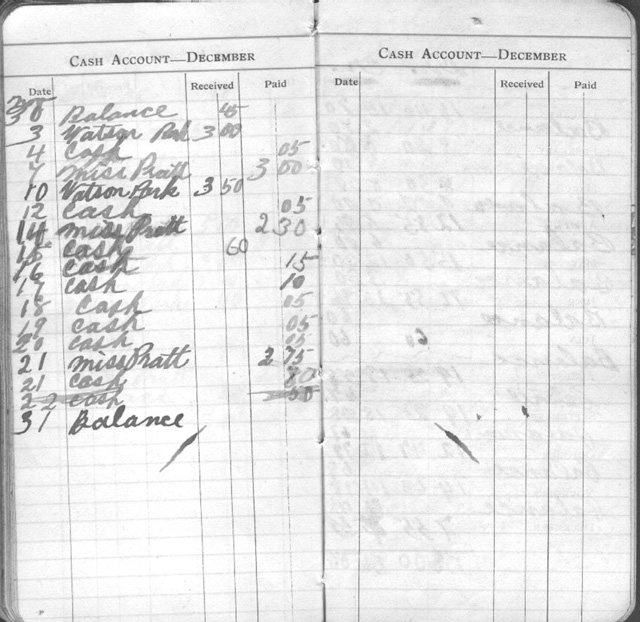 CASH ACCOUNT—DECEMBER
Date Received Paid
30 Balance 45
3 Watson Park 3 00
4 Cash 05
7 Miss Pratt 3 00
10 Watson Park 3 50
12 Cash 05
14 Miss Pratt 2 30
15 Cash 60
16 Cash 15
17 Cash 10
18 Cash 05
19 Cash 05
20 Cash 05
21 Miss Pratt 2 75
21 Cash 80
22 Cash 50
31 Balance
CASH ACCOUNT—DECEMBER
Date Received Paid